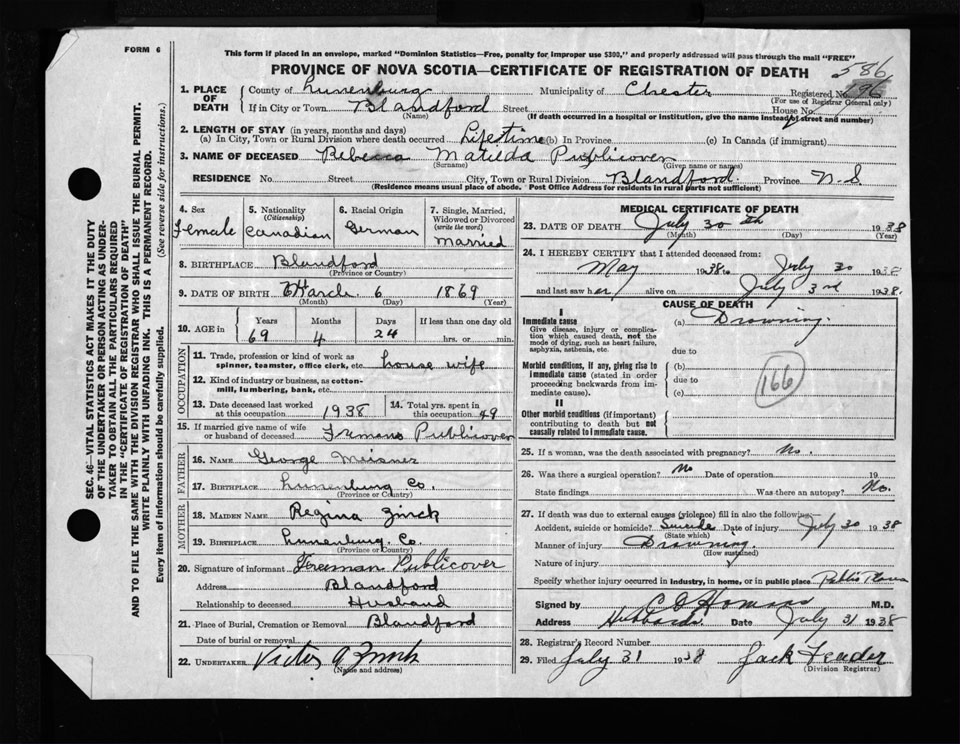 FORM 6
This form if placed in an envelope, marked "Dominion Statistics—Free, penalty for improper use $300," and properly addressed will pass through the mail "FREE"
PROVINCE OF NOVA SCOTIA—CERTIFICATE OF REGISTRATION OF DEATH
586
1. PLACE OF DEATH
County of Lunenburg Municipality of Chester Registered No. 196
(For use of Registrar General only)
If in City or Town Blandford Street House No.
(Name) (If death occurred in a hospital or institution, give the name instead of street and number)
2. LENGTH OF STAY (in years, months and days)
(a) In City, Town or Rural Division where death occurred Lifetime (b) In Province (c) In Canada (if immigrant)
3. NAME OF DECEASED Rebecca Matilda Publicover
(Surname) (Given name or names)
RESIDENCE No. Street City, Town or Rural Division Blandford. Province N.S
(Residence means usual place of abode. Post Office Address for residents in rural parts not sufficient)
4. Sex Female
5. Nationality (Citizenship) Canadian
6. Racial Origin German
7. Single, Married, Widowed or Divorced (write the word) Married
8. BIRTHPLACE Blandford
(Province or Country)
9. DATE OF BIRTH March 6 1869
(Month) (Day) (Year)
10. AGE in Years Months Days If less than one day old
69 4 24 hrs. or min.
OCCUPATION
11. Trade, profession or kind of work as spinner, teamster, office clerk, etc. house wife
12. Kind of industry or business, as cotton-mill, lumbering, bank, etc.
13. Date deceased last worked at this occupation 1938
14. Total yrs. spent in this occupation 49
15. If married give name of wife or husband of deceased Publicover
FATHER
16. NAME George Meisner
17. BIRTHPLACE Lunenburg Co.
(Province or Country)
MOTHER
18. MAIDEN NAME Regina Zinck
19. BIRTHPLACE Lunenburg. Co.
(Province or Country)
20. Signature of informant Freeman Publicover
Address Blandford
Relationship to deceased Husband
21. Place of Burial, Cremation or Removal Blandford
Date of burial or removal
22. UNDERTAKER Victor Zinck
(Name and address)
MEDICAL CERTIFICATE OF DEATH
23. DATE OF DEATH July 30th 1938
(Month) (Day) (Year)
24. I HEREBY CERTIFY that I attended deceased from:
May 1938 to July 30 1938
and last saw her alive on July 3rd 1938.
CAUSE OF DEATH
I
Immediate cause
Give disease, injury or complication which caused death, not the mode of dying, such as heart failure, asphyxia, asthenia, etc.
(a) Drowning.
due to
Morbid conditions, if any, giving rise to immediate cause (stated in order proceeding backwards from immediate cause).
(b)
due to
(c)
166
II
Other morbid conditions (if important) contributing to death but not causally related to immediate cause.
25. If a woman, was the death associated with pregnancy? No.
26. Was there a surgical operation? No Date of operation 19
State findings Was there an autopsy? No.
27. If death was due to external causes (violence) fill in also the following:
Accident, suicide or homicide? Suicide Date of injury July 30 1938
(State which)
Manner of injury Drowning.
(How sustained)
Nature of injury
Specify whether injury occurred in industry, in home, or in public place Public Place
Signed by M.D.
Address Hubbards. Date July 31 1938
28. Registrar's Record Number
29. Filed July 31 1938 Jack
(Division Registrar)
SEC. 46—VITAL STATISTICS ACT MAKES IT THE DUTY
OF THE UNDERTAKER OR PERSON ACTING AS UNDER-
TAKER TO OBTAIN ALL THE PARTICULARS REQUIRED
IN THE "CERTIFICATE OF REGISTRATION OF DEATH"
AND TO FILE THE SAME WITH THE DIVISION REGISTRAR WHO SHALL ISSUE THE BURIAL PERMIT.
WRITE PLAINLY WITH UNFADING INK. THIS IS A PERMANENT RECORD.
Every item of information should be carefully supplied. (See reverse side for instructions.)